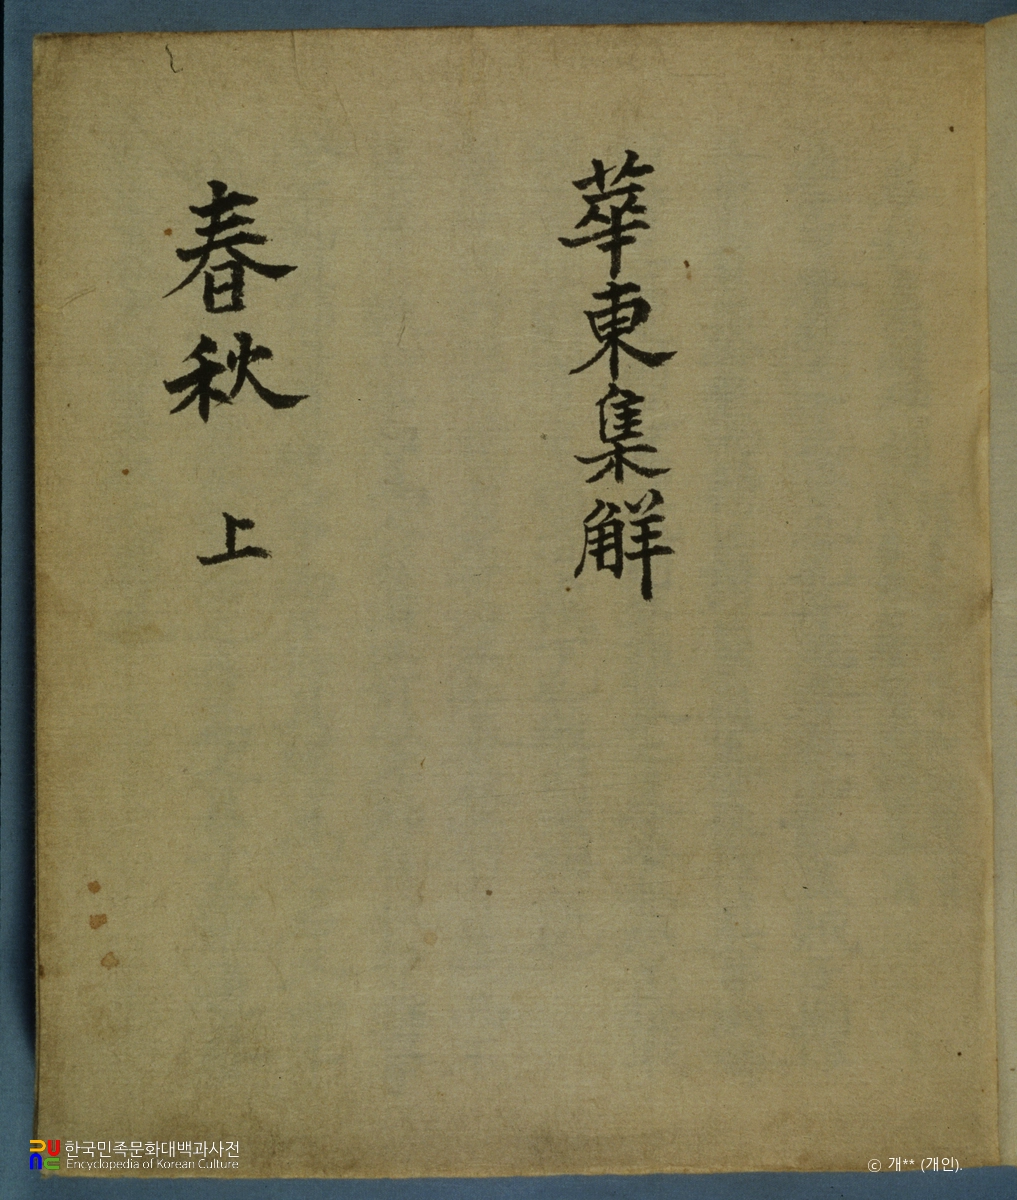 華東集觧
春秋 上
한국민족문화대백과사전
Encyclopedia of Korean Culture
ⓒ 개** (개인).